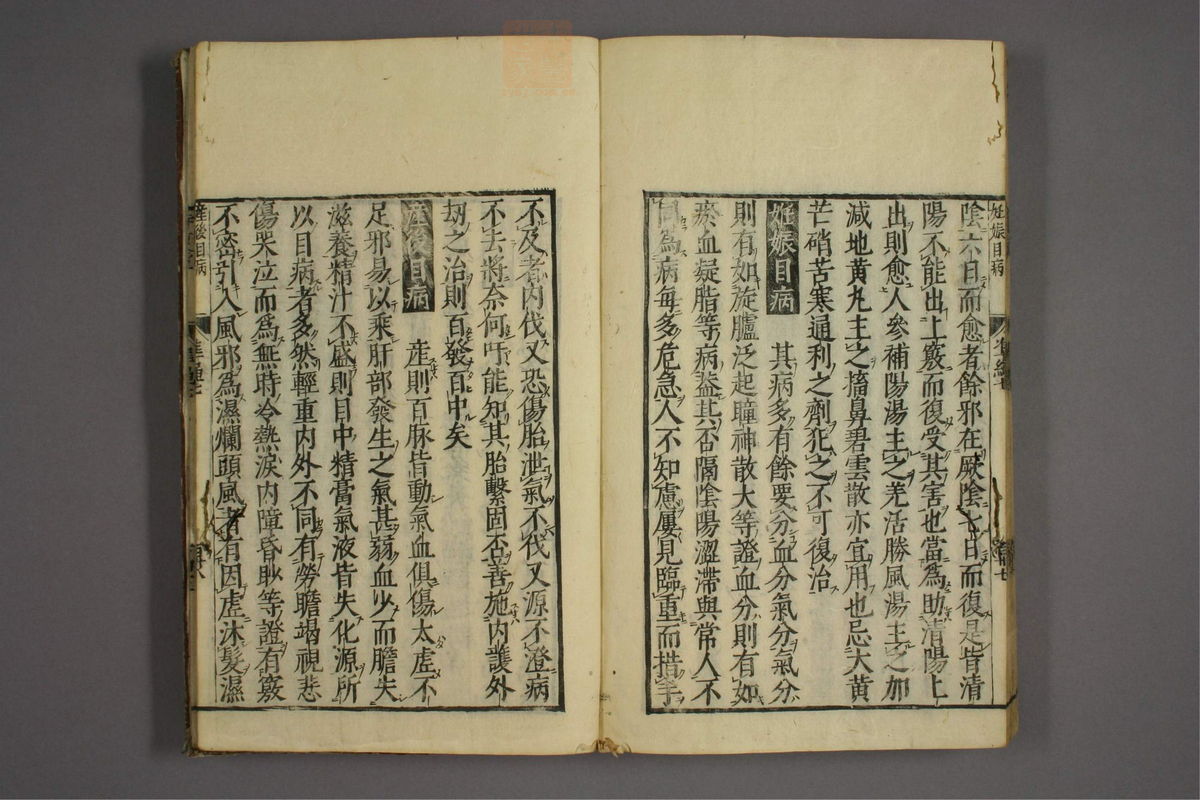 陰六日而愈者餘邪在厥陰七日而復是皆清
陽不能出上竅而復受其害也當為助清陽上
出則愈人參補陽湯主之羌活勝風湯主之加
減地黃丸主之搐鼻碧雲散亦宜用也忌大黃
芒硝苦寒通利之劑犯之不可復治
妊娠目病
其病多有餘要分血分氣分氣分
則有如旋臚泛起瞳神散大等證血分則有如
瘀血凝脂等病蓋其否隔陰陽澀滯與常人不
同為病每多危急人不知慮屢見臨重而措手
不及者內伐又恐傷胎泄氣不伐又源不澄病
不去將奈何吁能知其胎繫固否善施內護外
劫之治則百發百中矣
産後目病
産則百脉皆動氣血俱傷太虛不
足邪易以乘肝部發生之氣甚弱血少而膽失
滋養精汁不盛則目中精膏氣液皆失化源所
以目病者多然輕重內外不同有勞瞻竭視悲
傷哭泣而為無時冷熱淚內障昏眇等證有竅
不密引入風邪為濕爛頭風者有因虛沐髮濕
妊娠目病
産後目病